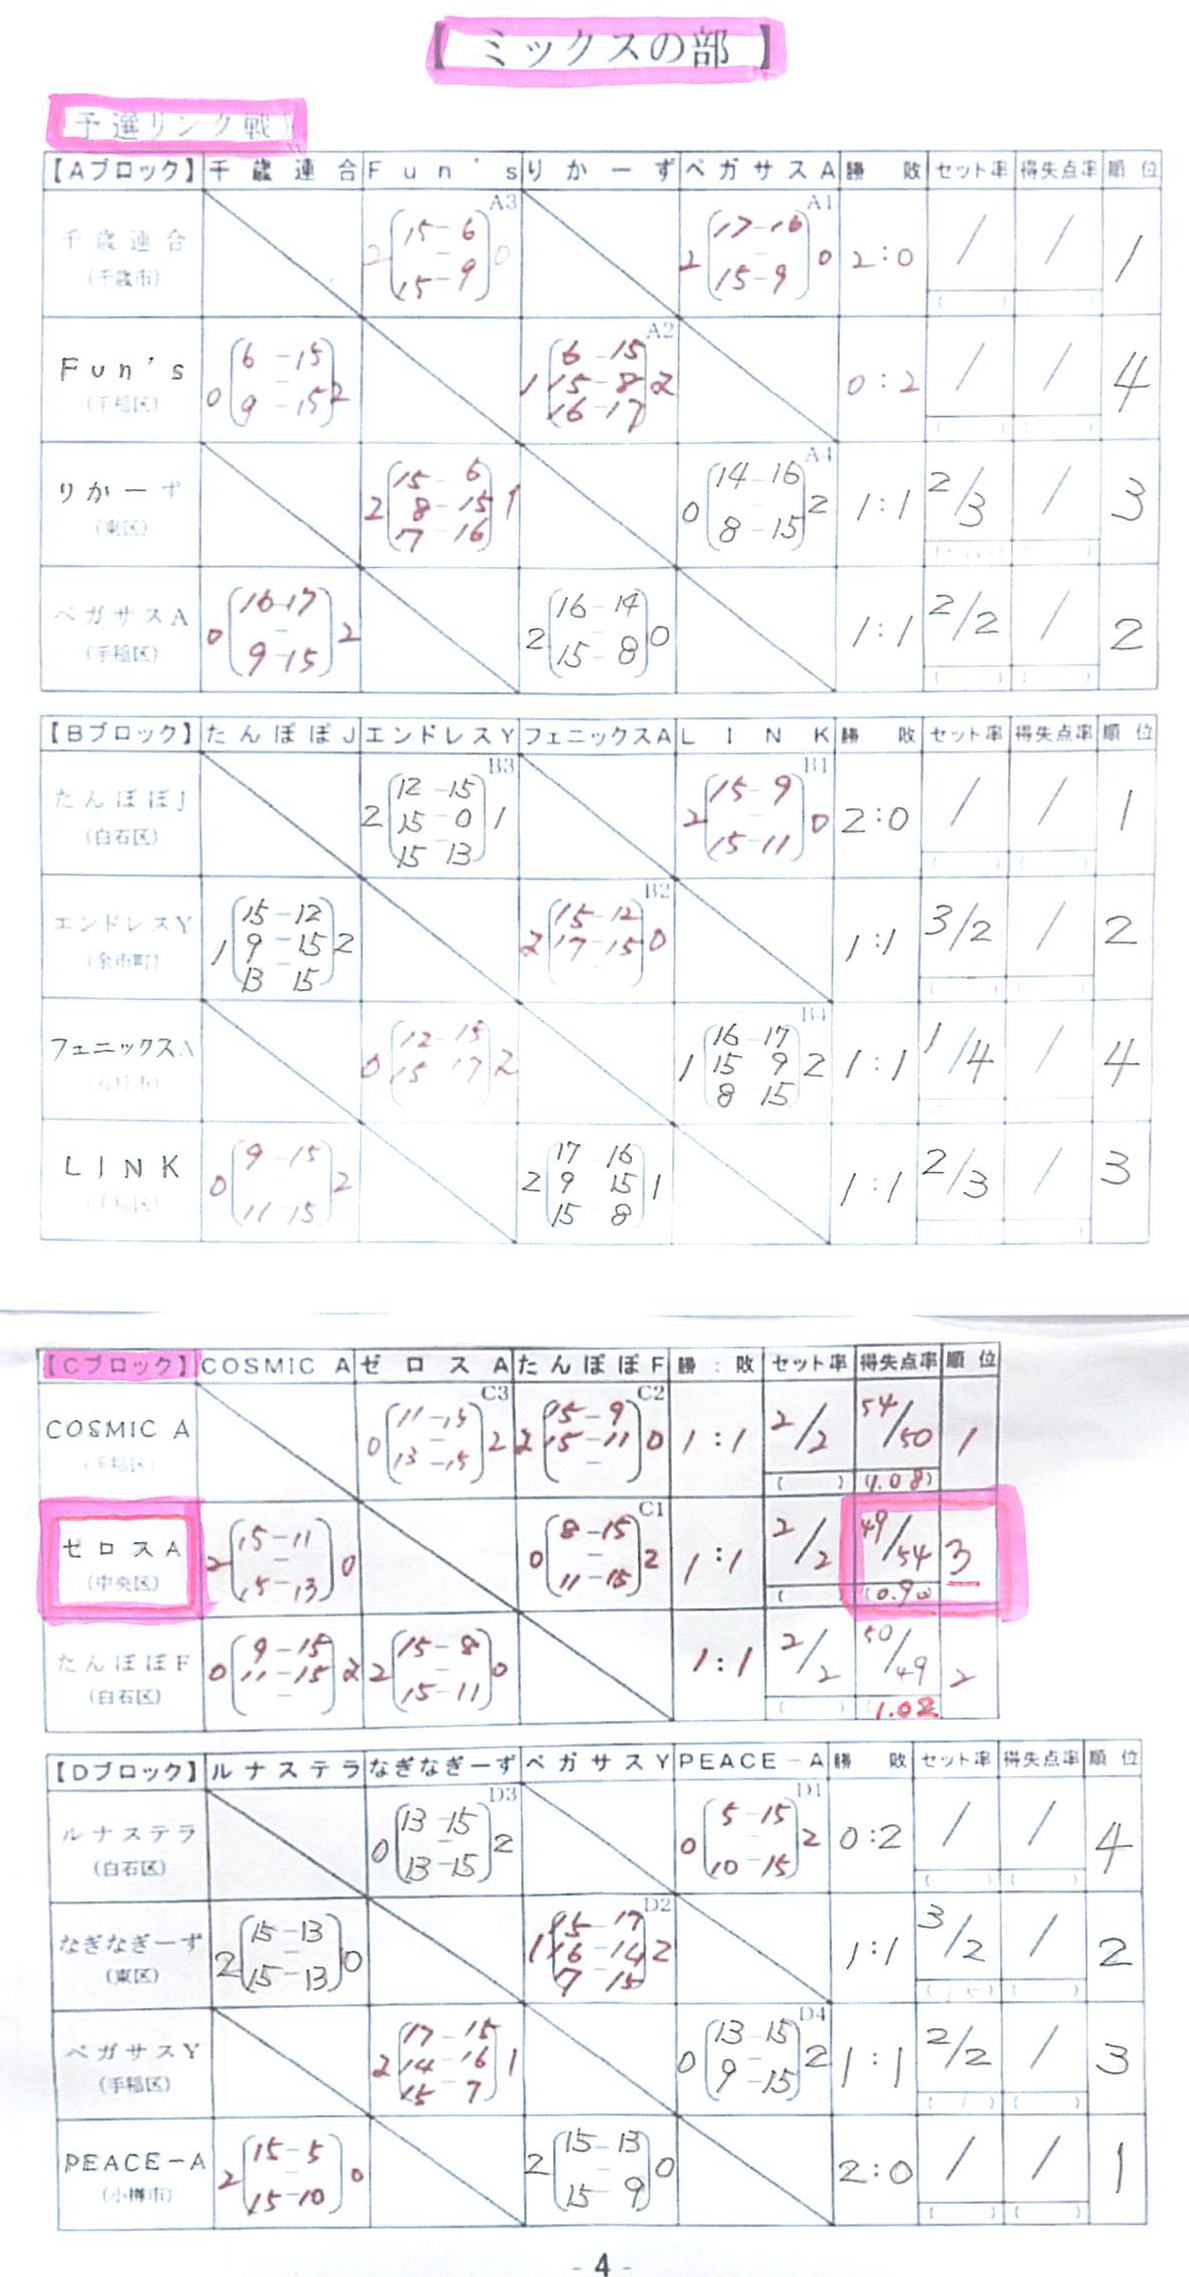 【 ミックスの部 】
予選リンク戦》
【Aブロック】 千歳連合 Fun's りかーず ペガサスA 勝 敗 セット率 得失点率 順位
千歳連合 (千歳市) A3 2 15-6 - 15-9 0 A1 2 17-16 - 15-9 0 2:0 / / 1
Fun's (手稲区) 0 6-15 - 9-15 2 A2 1 6-15 15-8 16-17 2 0:2 / / 4
りかーず (東区) 2 15-6 8-15 7-16 1 A4 0 14-16 - 8-15 2 1:1 2/3 / 3
ペガサスA (手稲区) 0 16-17 - 9-15 2 2 16-14 - 15-8 0 1:1 2/2 / 2
【Bブロック】 たんぽぽJ エンドレスY フェニックスA LINK 勝 敗 セット率 得失点率 順位
たんぽぽJ (白石区) B3 2 12-15 15-0 15-13 1 B1 2 15-9 - 15-11 0 2:0 / / 1
エンドレスY (余市町) 1 15-12 9-15 13 15 2 B2 2 15-12 17-15 0 1:1 3/2 / 2
フェニックスA 0 12-15 15 17 2 B4 1 16-17 15 9 8 15 2 1:1 1/4 / 4
LINK (手稲区) 0 9-15 11-15 2 2 17 16 9 15 15 8 1 1:1 2/3 / 3
【Cブロック】 COSMIC A ゼロスA たんぽぽF 勝:敗 セット率 得失点率 順位
COSMIC A (手稲区) C3 0 11-15 - 13-15 2 C2 2 15-9 15-11 - 0 1:1 2/2 54/50 (1.08) 1
ゼロスA (中央区) 2 15-11 - 15-13 0 C1 0 8-15 - 11-15 2 1:1 2/2 49/54 (0.90) 3
たんぽぽF (白石区) 0 9-15 11-15 - 2 2 15-8 - 15-11 0 1:1 2/2 50/49 (1.02 2
【Dブロック】 ルナステラ なぎなぎーず ペガサスY PEACE-A 勝 敗 セット率 得失点率 順位
ルナステラ (白石区) D3 0 13-15 - 13-15 2 D1 0 5-15 - 10-15 2 0:2 / / 4
なぎなぎーず (東区) 2 15-13 - 15-13 0 D2 1 15-17 16-14 7-15 2 1:1 3/2 / 2
ペガサスY (手稲区) 2 17-15 14-16 15 7 1 D4 0 13-15 - 9-15 2 1:1 2/2 / 3
PEACE-A (小樽市) 2 15-5 - 15-10 0 2 15-13 - 15-9 0 2:0 / / 1
- 4 -